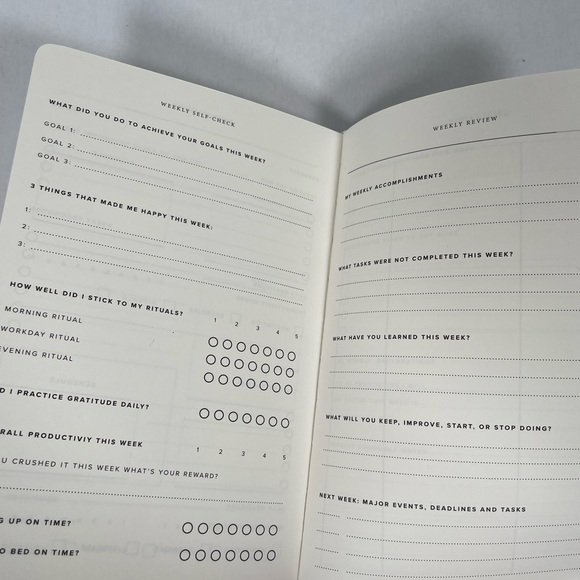 WEEKLY SELF-CHECK
WHAT DID YOU DO TO ACHIEVE YOUR GOALS THIS WEEK?
GOAL 1:
GOAL 2:
GOAL 3:
3 THINGS THAT MADE ME HAPPY THIS WEEK:
1:
2:
3:
HOW WELL DID I STICK TO MY RITUALS?
1 2 3 4 5
MORNING RITUAL
WORKDAY RITUAL
EVENING RITUAL
I PRACTICE GRATITUDE DAILY?
PRODUCTIVIY THIS WEEK
1 2 3 4 5
CRUSHED IT THIS WEEK WHAT'S YOUR REWARD?
UP ON TIME?
BED ON TIME?
WEEKLY REVIEW
MY WEEKLY ACCOMPLISHMENTS
WHAT TASKS WERE NOT COMPLETED THIS WEEK?
WHAT HAVE YOU LEARNED THIS WEEK?
WHAT WILL YOU KEEP, IMPROVE, START, OR STOP DOING?
NEXT WEEK: MAJOR EVENTS, DEADLINES AND TASKS